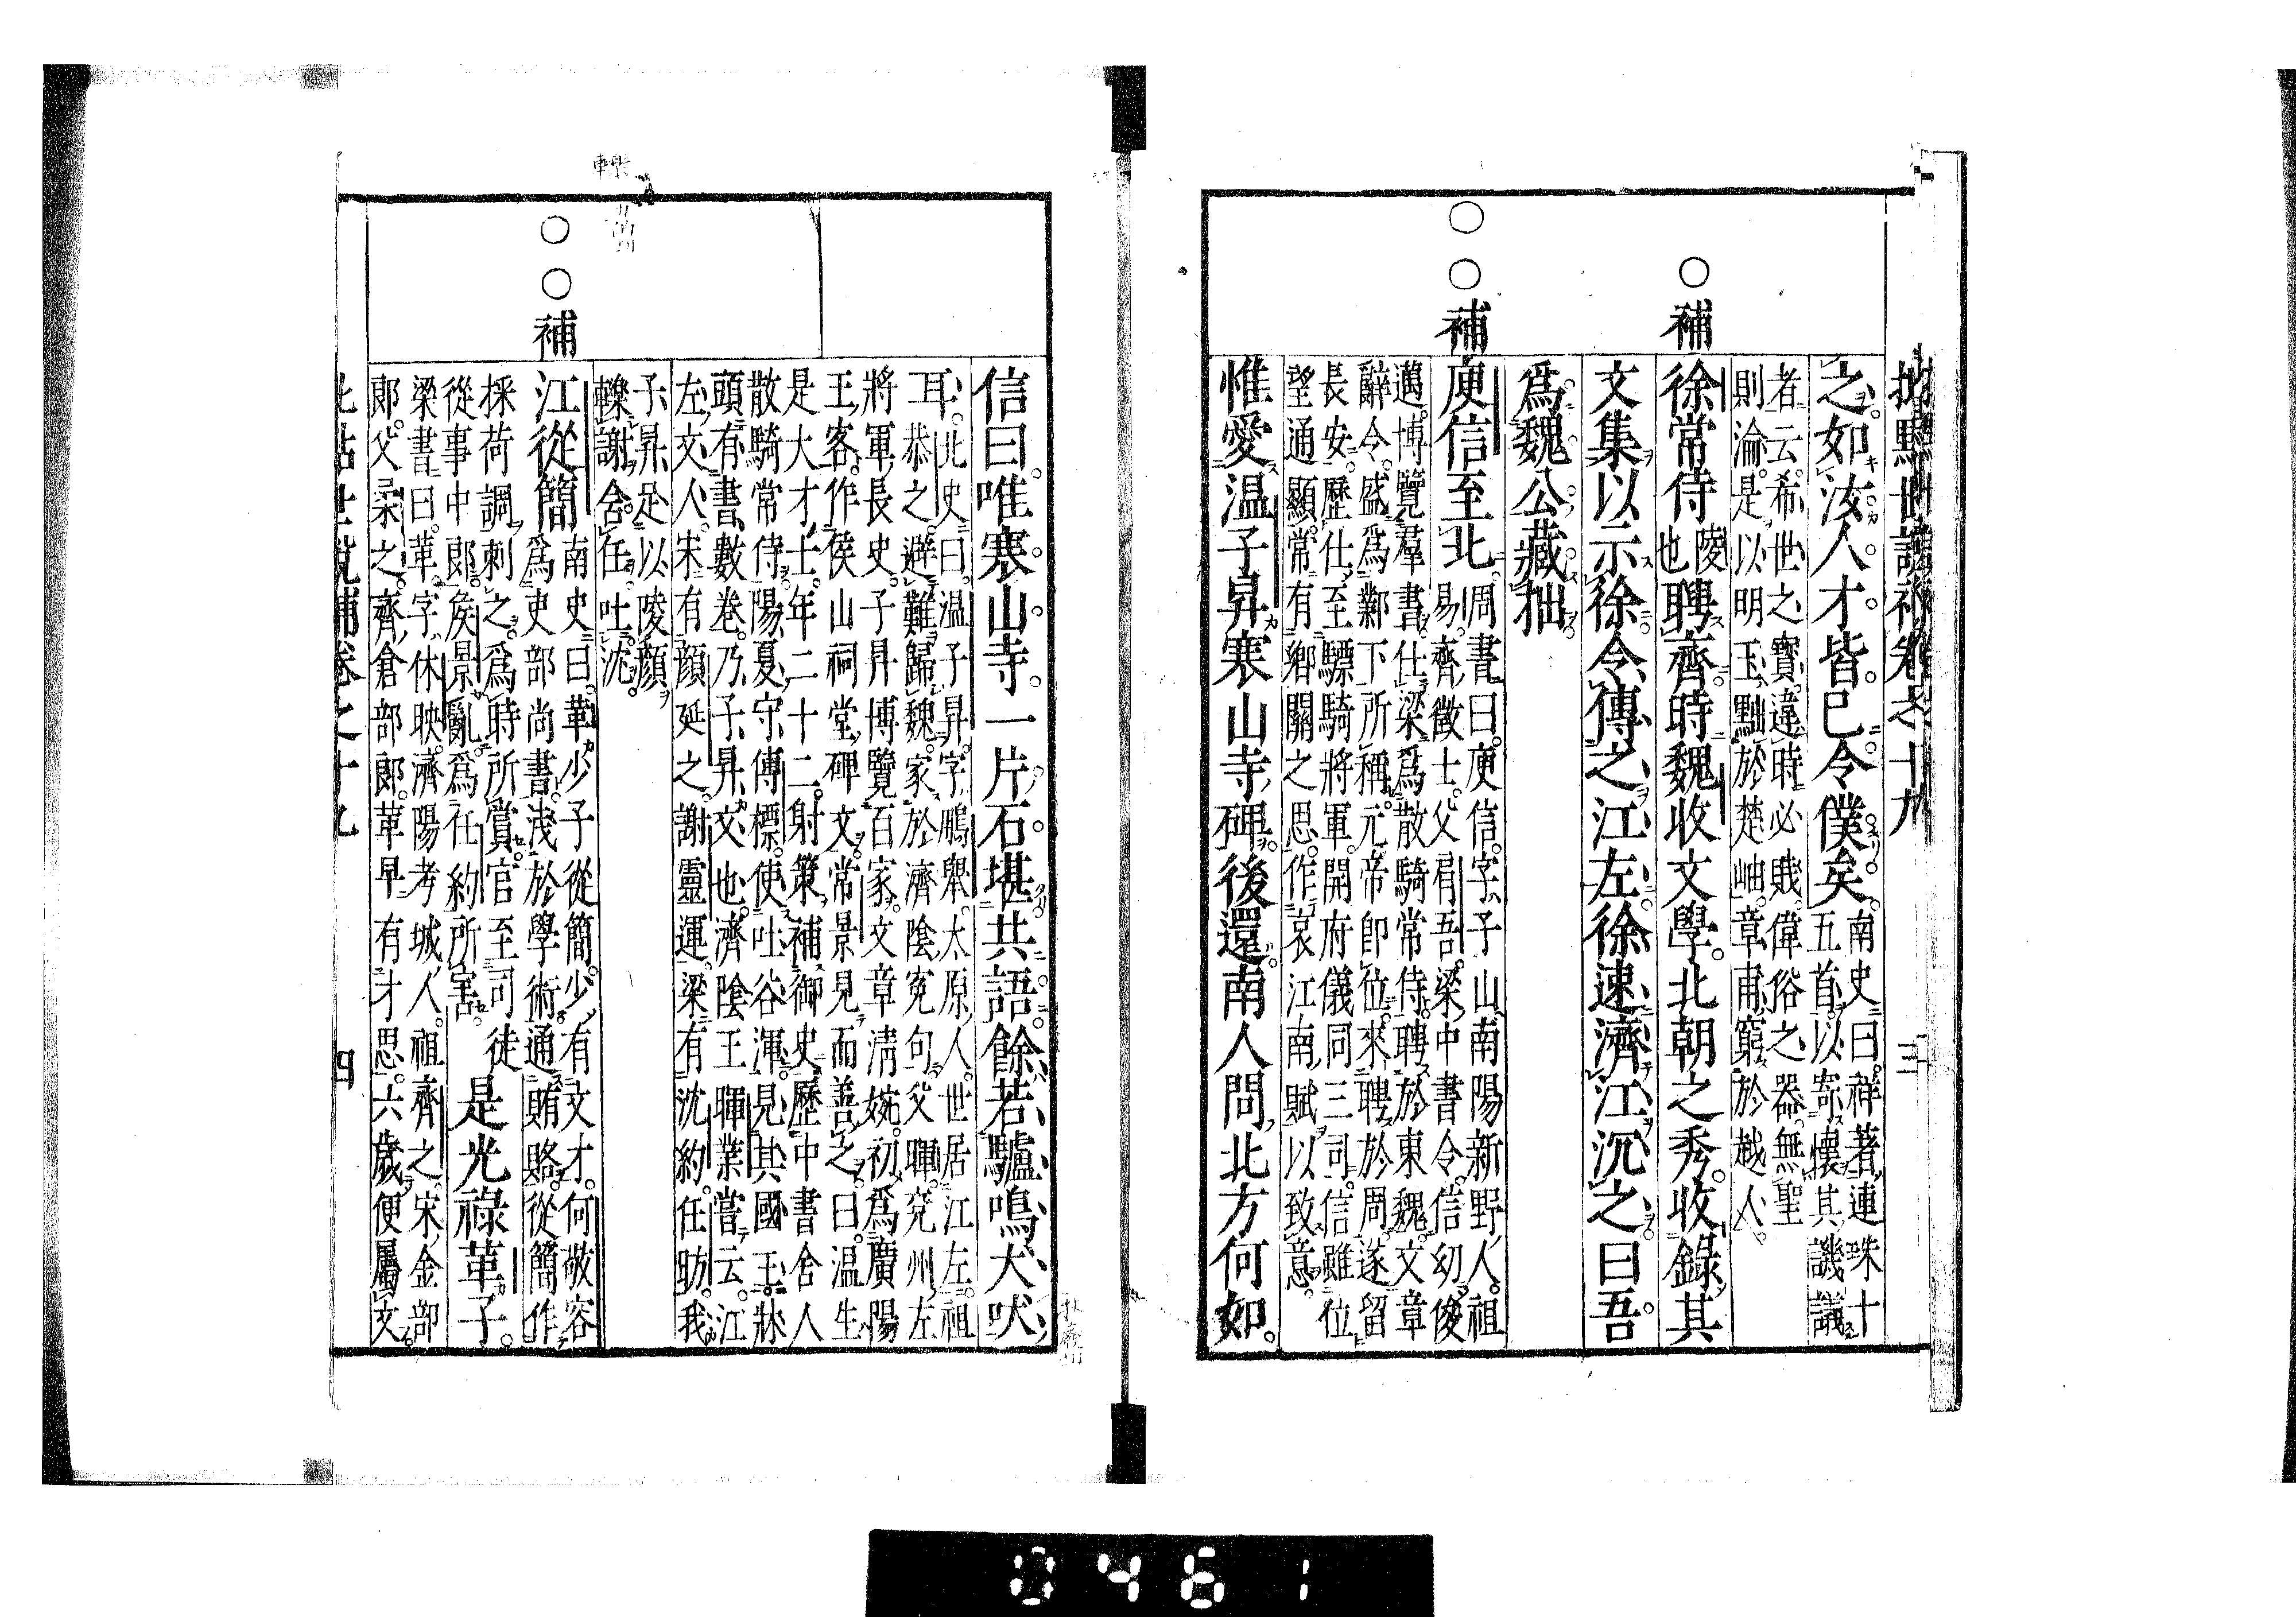 批點世說補卷之十九
三
之。如汝人才。皆已令僕矣。
南史曰。祥著連珠十
五首。以寄懷其譏議
者云。希世之寶。違時必賤。偉俗之器。無聖
則淪。是以明玉黜於楚岫。章甫窮於越人。
補
徐常侍
陵
也
聘齊。時魏收文學。北朝之秀。收錄其
文集以示徐。令傳之江左。徐速濟江沉之曰。吾
爲魏公藏拙。
補
庾信至北。
周書曰。庾信。字子山。南陽新野人。祖
易。齊徵士。父肩吾。梁中書令。信幼俊
邁。博覽羣書。仕梁爲散騎常侍。聘於東魏。文章
辭令。盛爲鄴下所稱。元帝卽位。來聘於周。遂留
長安。歷仕至驃騎將軍。開府儀同三司。信雖位
望通顯。常有鄉關之思。作哀江南賦以致意。
惟愛溫子昇寒山寺碑。後還。南人問北方何如。
信曰。唯寒山寺一片石堪共語。餘若驢鳴犬吠
耳。
北史曰。溫子昇。字鵬舉。太原人。世居江左。祖
恭之。避難歸魏。家於濟陰寃句。父暉。兗州左
將軍長史。子昇博覽百家。文章淸婉。初爲廣陽
王客。作侯山祠堂碑文。常景見而善之曰。溫生
是大才士。年二十二。射策補御史。歷中書舍人
散騎常侍。陽夏守傅標。使吐谷渾。見其國王牀
頭有書數卷。乃子昇文也。濟陰王暉業嘗云。江
左文人。宋有顏延之。謝靈運。梁有沈約。任昉。我
子昇足以陵顏
轢謝。含任吐沈。
補
江從簡
南史曰。革少子從簡。少有文才。何敬容
爲吏部尚書。淺於學術。通賄賂。從簡作
採荷調刺之。爲時所賞。官至司徒
從事中郞。矦景亂。爲任約所害。
是光祿革子。
梁書曰。革。字休映。濟陽考城人。祖齊之。宋金部
郞。父柔之。齊倉部郞。革早有才思。六歲便屬文。
批點世說補卷之十九
四
0461